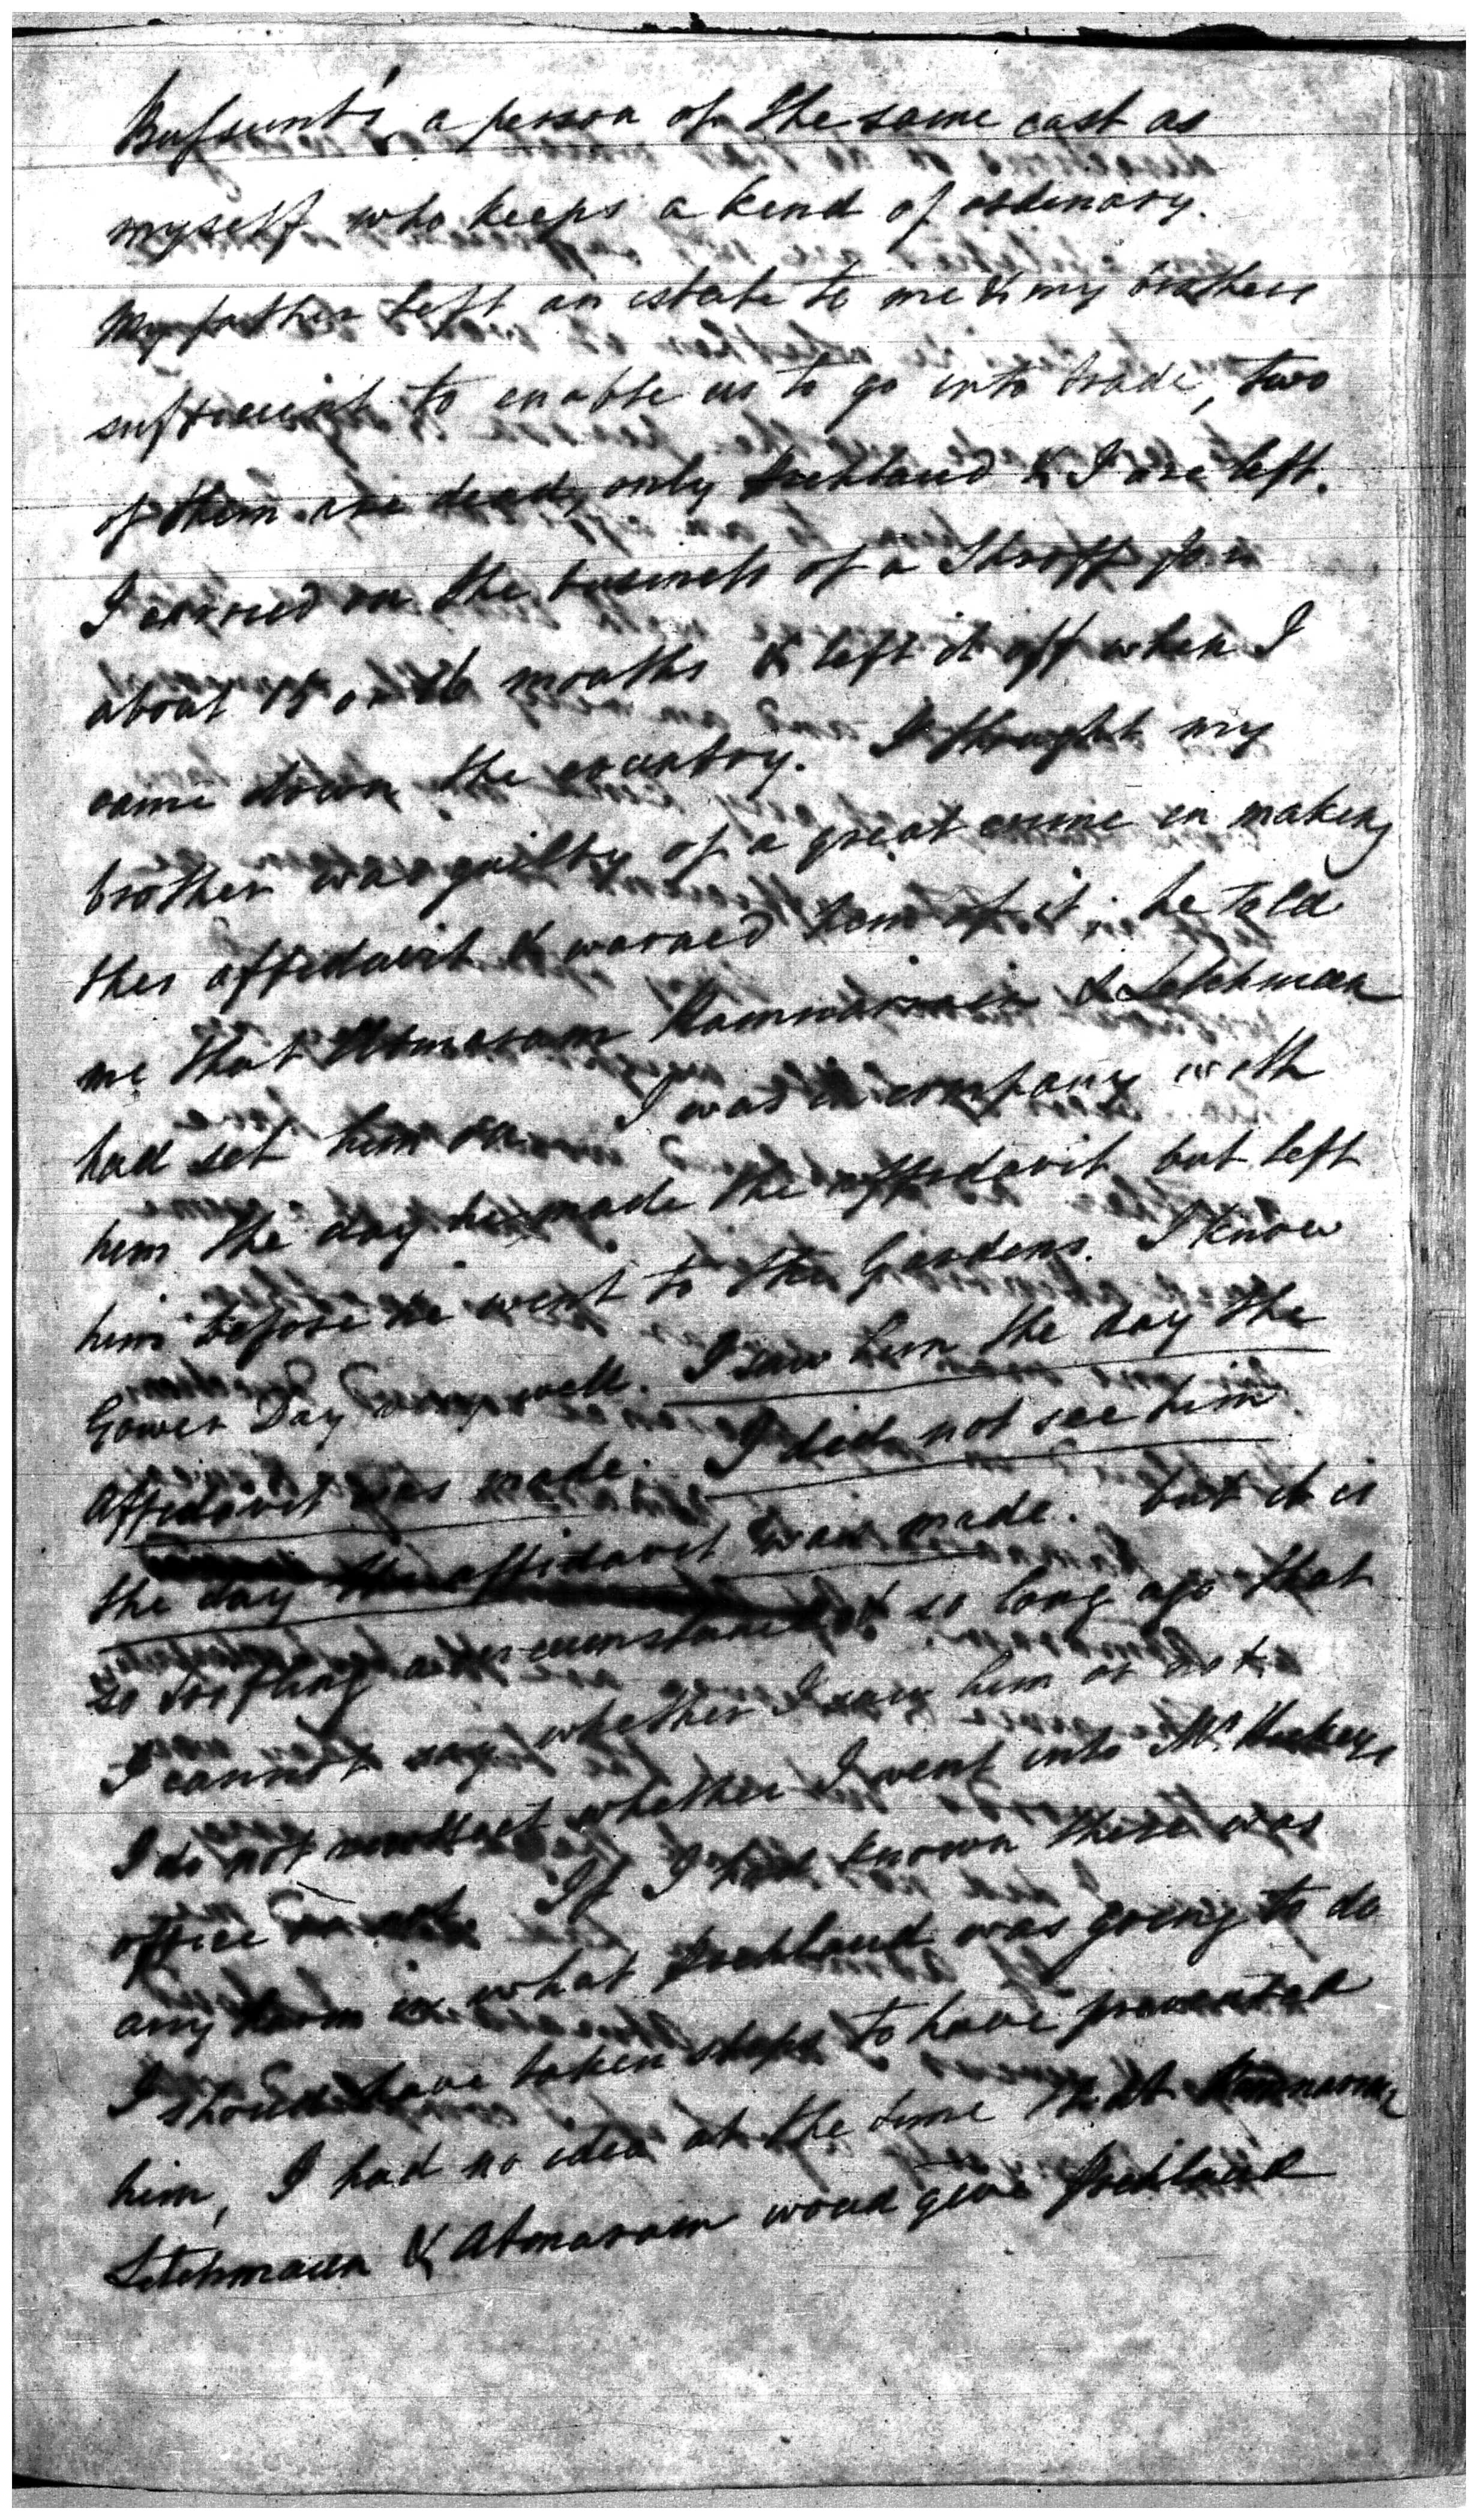 Bussunt's, a person of the same cast as
myself who keeps a kind of ordinary.
My father left an estate to me & my brothers
sufficient to enable us to go into trade, two
of them are dead, only & I are left.
I carried on the business of a Shroff for
about 15 or 16 months & left it off when I
came down the country. I thought my
brother was guilty of a great crime in making
this affidavit & warned him of it. he told
me that Atmaram Ramnarrain & Letchmun
had set him on. I was in company with
him the day he made the affidavit but left
him before he went to the Gardens. I know
Gower Day very well. I saw him the day the
Affidavit was made. I did not see him
the day the affidavit was made. but it is
so trifling a circumstance & so long ago that
I cannot say whether I saw him or not.
I do not recollect whether I went into Mr. Hickeys
office or not. If I had known there was
any harm in what was going to do
I should have taken steps to have prevented
him, I had no idea at the time that Ramnarain
Letchmun & Atmaram would give